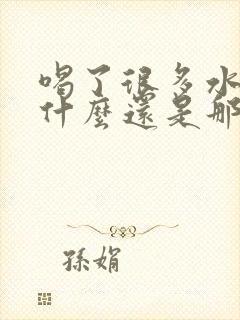 喝了很多水
什麼還是那
孫娟